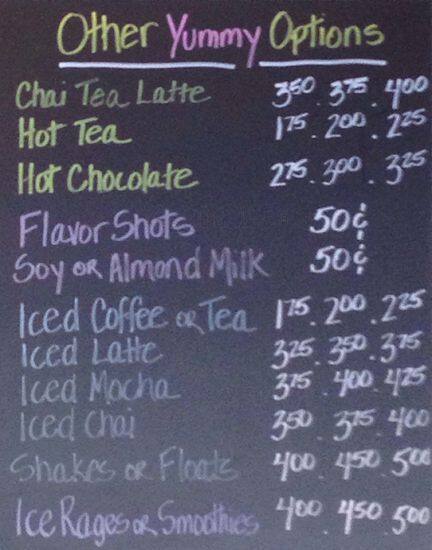 Other Yummy Options
Chai Tea Latte 3 50 . 3 75 . 4 00
Hot Tea 1 75 . 2 00 . 2 25
Hot Chocolate 2 75 . 3 00 . 3 25
Flavor Shots 50¢
Soy or Almond Milk 50¢
Iced Coffee or Tea 1 75 . 2 00 . 2 25
Iced Latte 3 25 . 3 50 . 3 75
Iced Mocha 3 75 . 4 00 . 4 25
Iced Chai 3 50 . 3 75 . 4 00
Shakes or Floats 4 00 . 4 50 . 5 00
Ice Rages or Smoothies 4 00 . 4 50 . 5 00